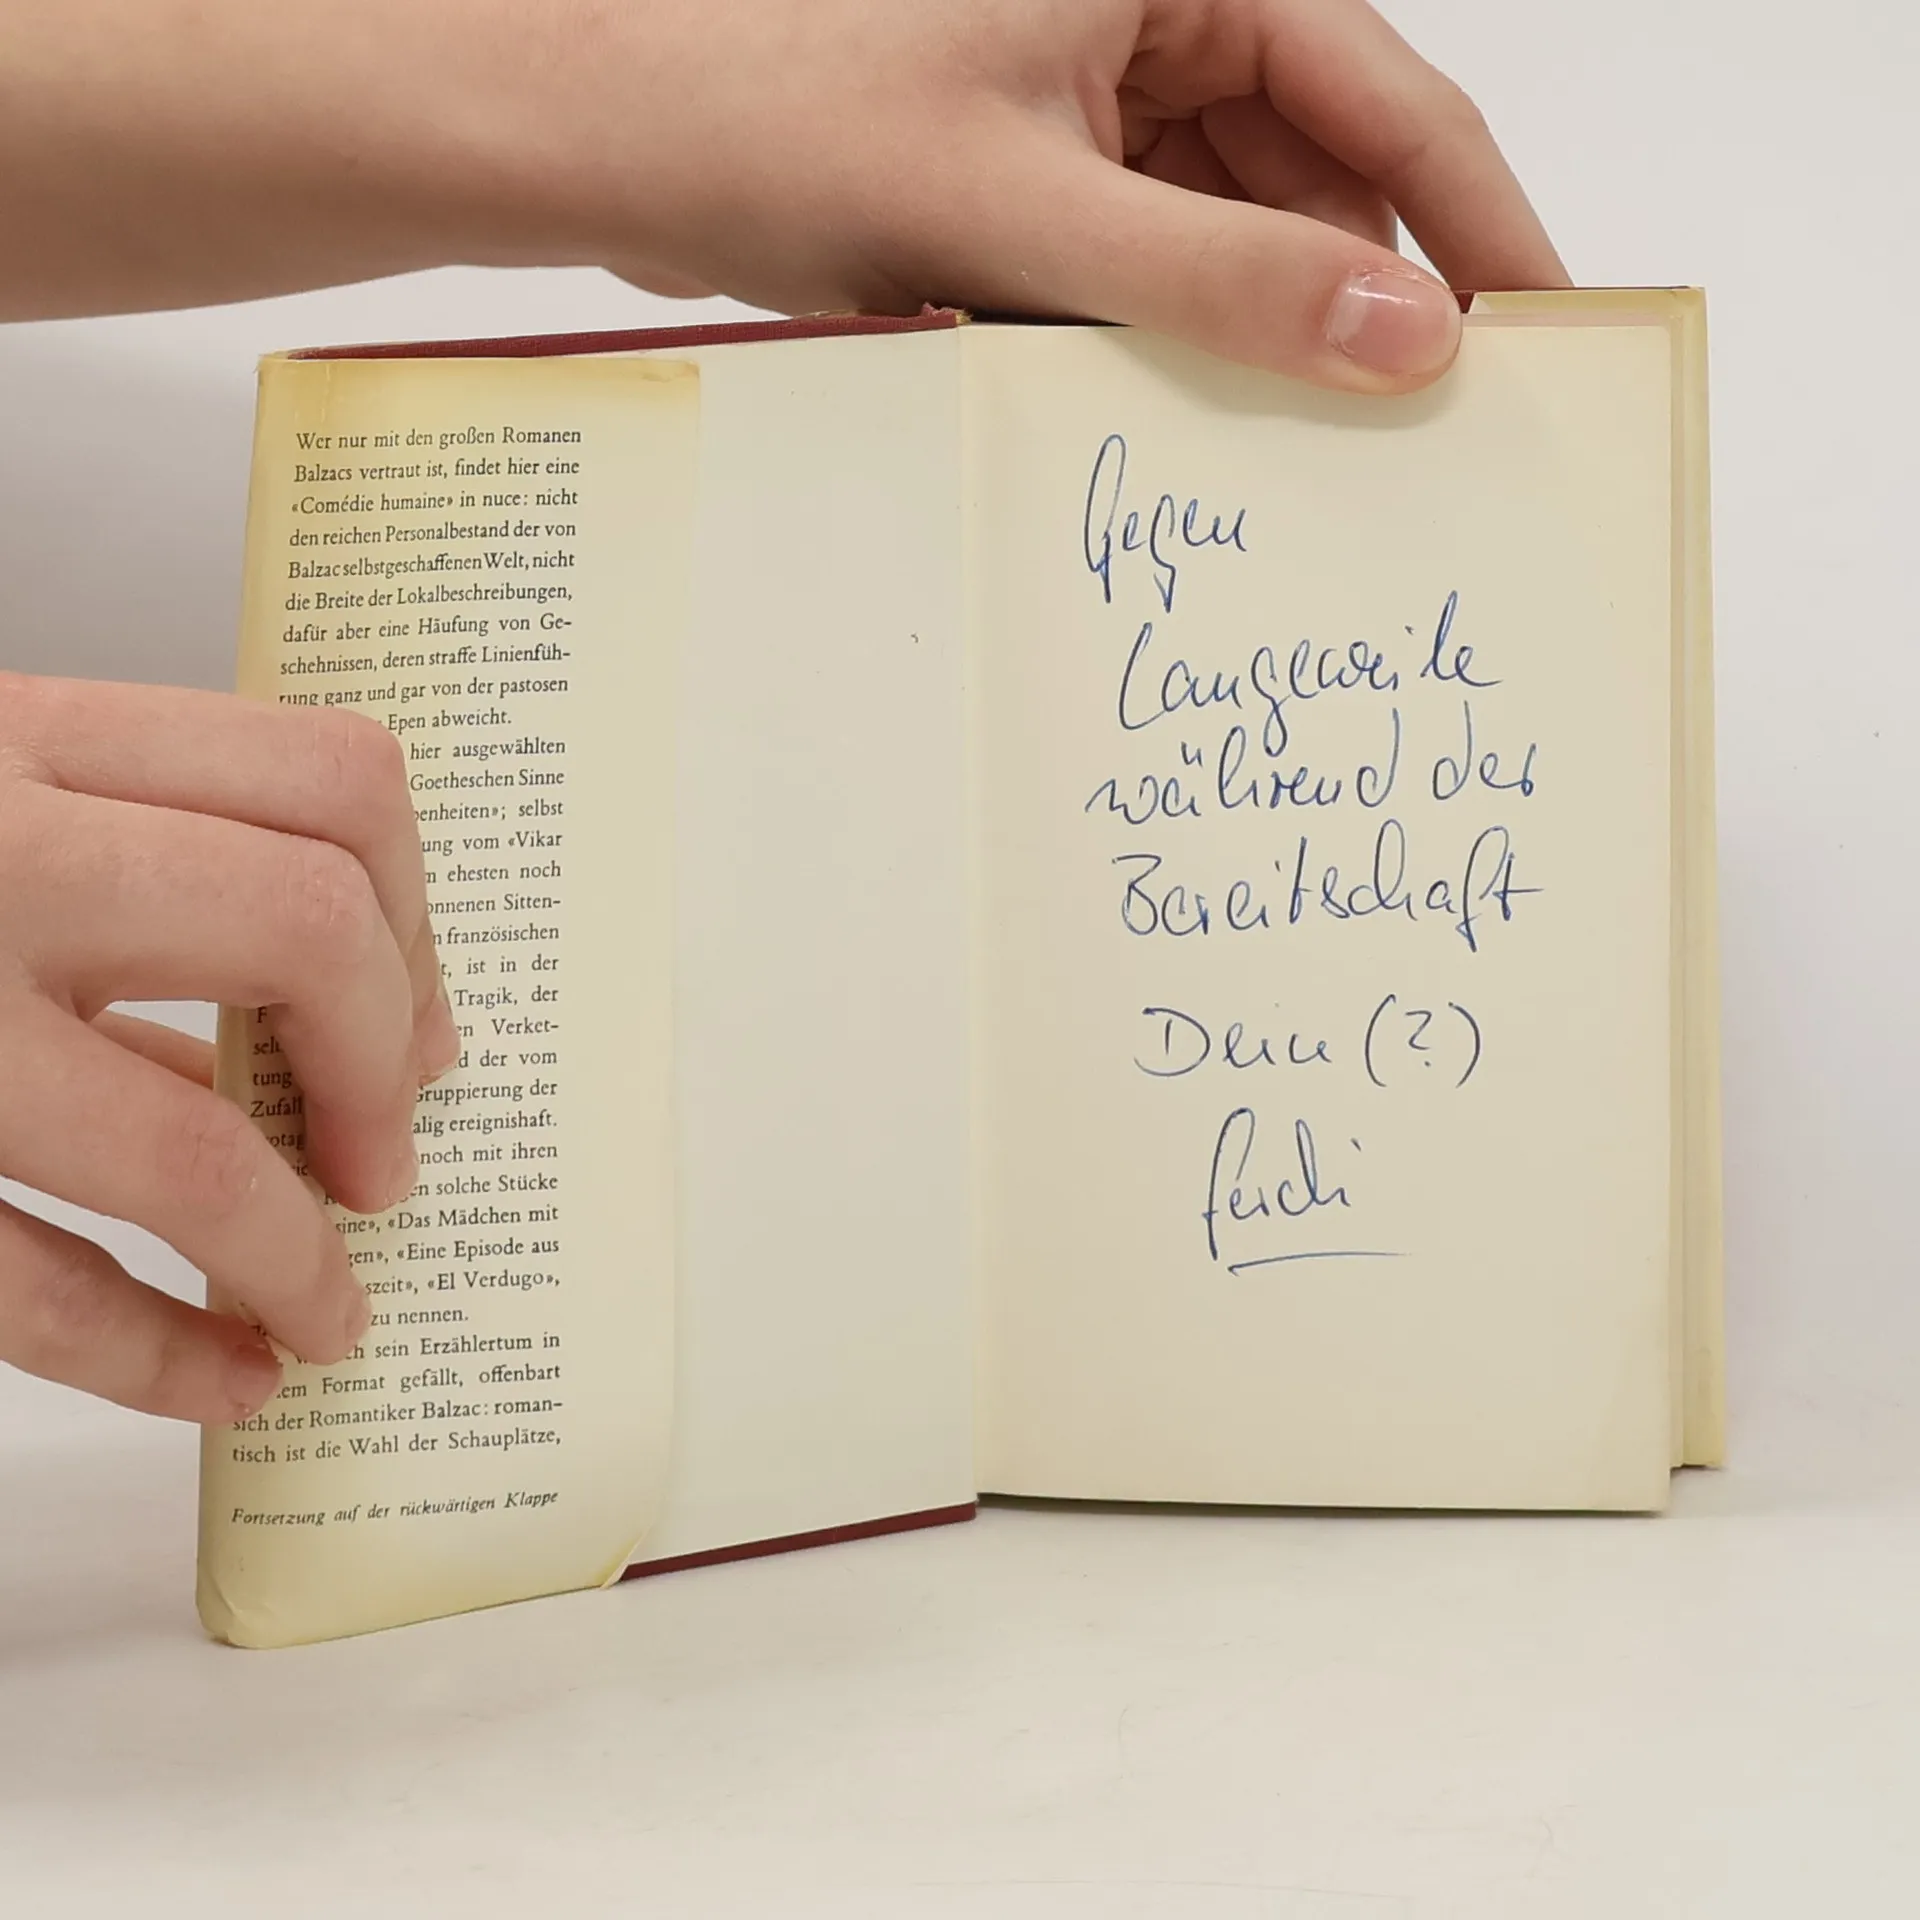 Wer nur mit den großen Romanen
Balzacs vertraut ist, findet hier eine
«Comédie humaine» in nuce: nicht
den reichen Personalbestand der von
Balzac selbstgeschaffenen Welt, nicht
die Breite der Lokalbeschreibungen,
dafür aber eine Häufung von Ge-
schehnissen, deren straffe Linienfüh-
rung ganz und gar von der pastosen
Epen abweicht.
hier ausgewählten
Goetheschen Sinne
selbst
vom «Vikar
ehesten noch
Sitten-
französischen
ist in der
Tragik, der
Verket-
der vom
tung
Gruppierung der
Zufall
ereignishaft.
noch mit ihren
solche Stücke
«Das Mädchen mit
«Eine Episode aus
«El Verdugo»,
zu nennen.
sein Erzählertum in
Format gefällt, offenbart
sich der Romantiker Balzac: roman-
tisch ist die Wahl der Schauplätze,
Fortsetzung auf der rückwärtigen Klappe
Gegen
Langeweile
während der
Bereitschaft
Dein (?)
Ferdi